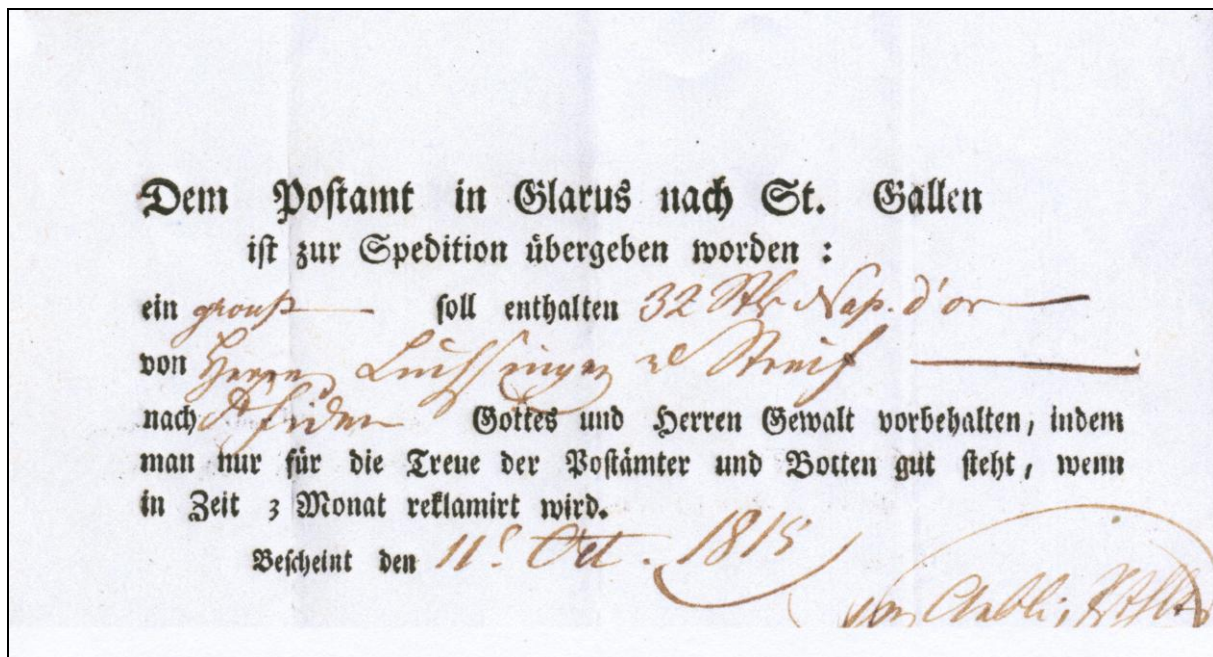 Dem Postamt in Glarus nach St. Gallen
ist zur Spedition übergeben worden :
ein group soll enthalten 32 Stk Nap. d'or
von Herren Luchsinger & Streif
nach Gottes und Herren Gewalt vorbehalten, indem
man nur für die Treue der Postämter und Botten gut steht, wenn
in Zeit 3 Monat reklamirt wird.
Bescheint den 11ᵗ Oct. 1815
von Aebli,